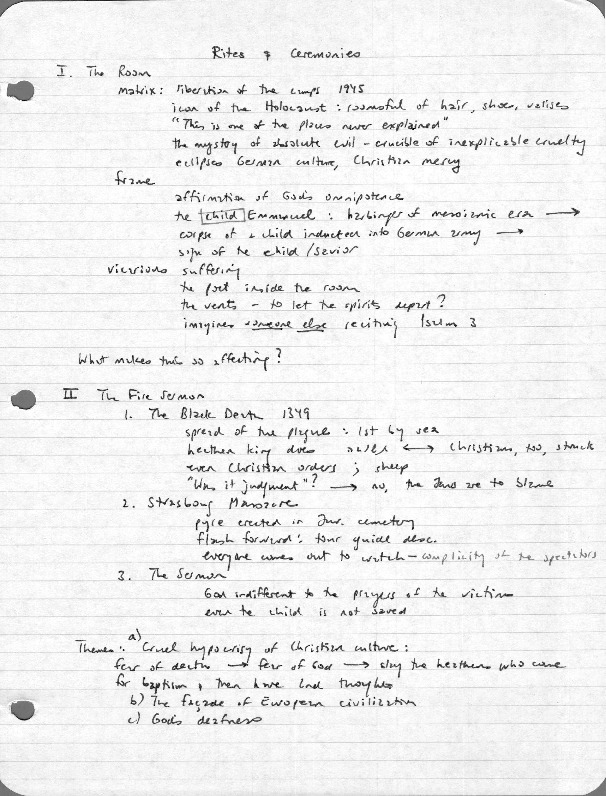 Rites & Ceremonies
I. The Room
matrix: liberation of the camps 1945
icon of the Holocaust: roomful of hair, shoes, valises
"This is one of the places never explained"
the mystery of absolute evil - crucible of inexplicable cruelty
eclipses German culture, Christian mercy
frame
affirmation of God's omnipotence
the child Emmanuel: harbinger of messianic era →
corpse of a child inducted into German army →
sign of the child/savior
vicarious suffering
the poet inside the room
the vents - to let the spirits depart?
imagines someone else reciting Psalm 3
What makes this so affecting?
II The Fire Sermon
1. The Black Death 1349
spread of the plague: 1st by sea
heathen king does ↔ Christians, too, struck
even Christian orders; sheep
"Was it judgment"? → no, the Jews are to blame
2. Strasbourg Massacre
pyre erected in Jew. cemetery
flash forward: tour guide desc.
everyone comes out to watch - complicity of the spectators
3. The Sermon
God indifferent to the prayers of the victims
even the child is not saved
Themes: a) Cruel hypocrisy of Christian culture:
fear of death → fear of God → slay the heathens who come
for baptism & then have 2nd thoughts
b) The façade of European civilization
c) God's deafness